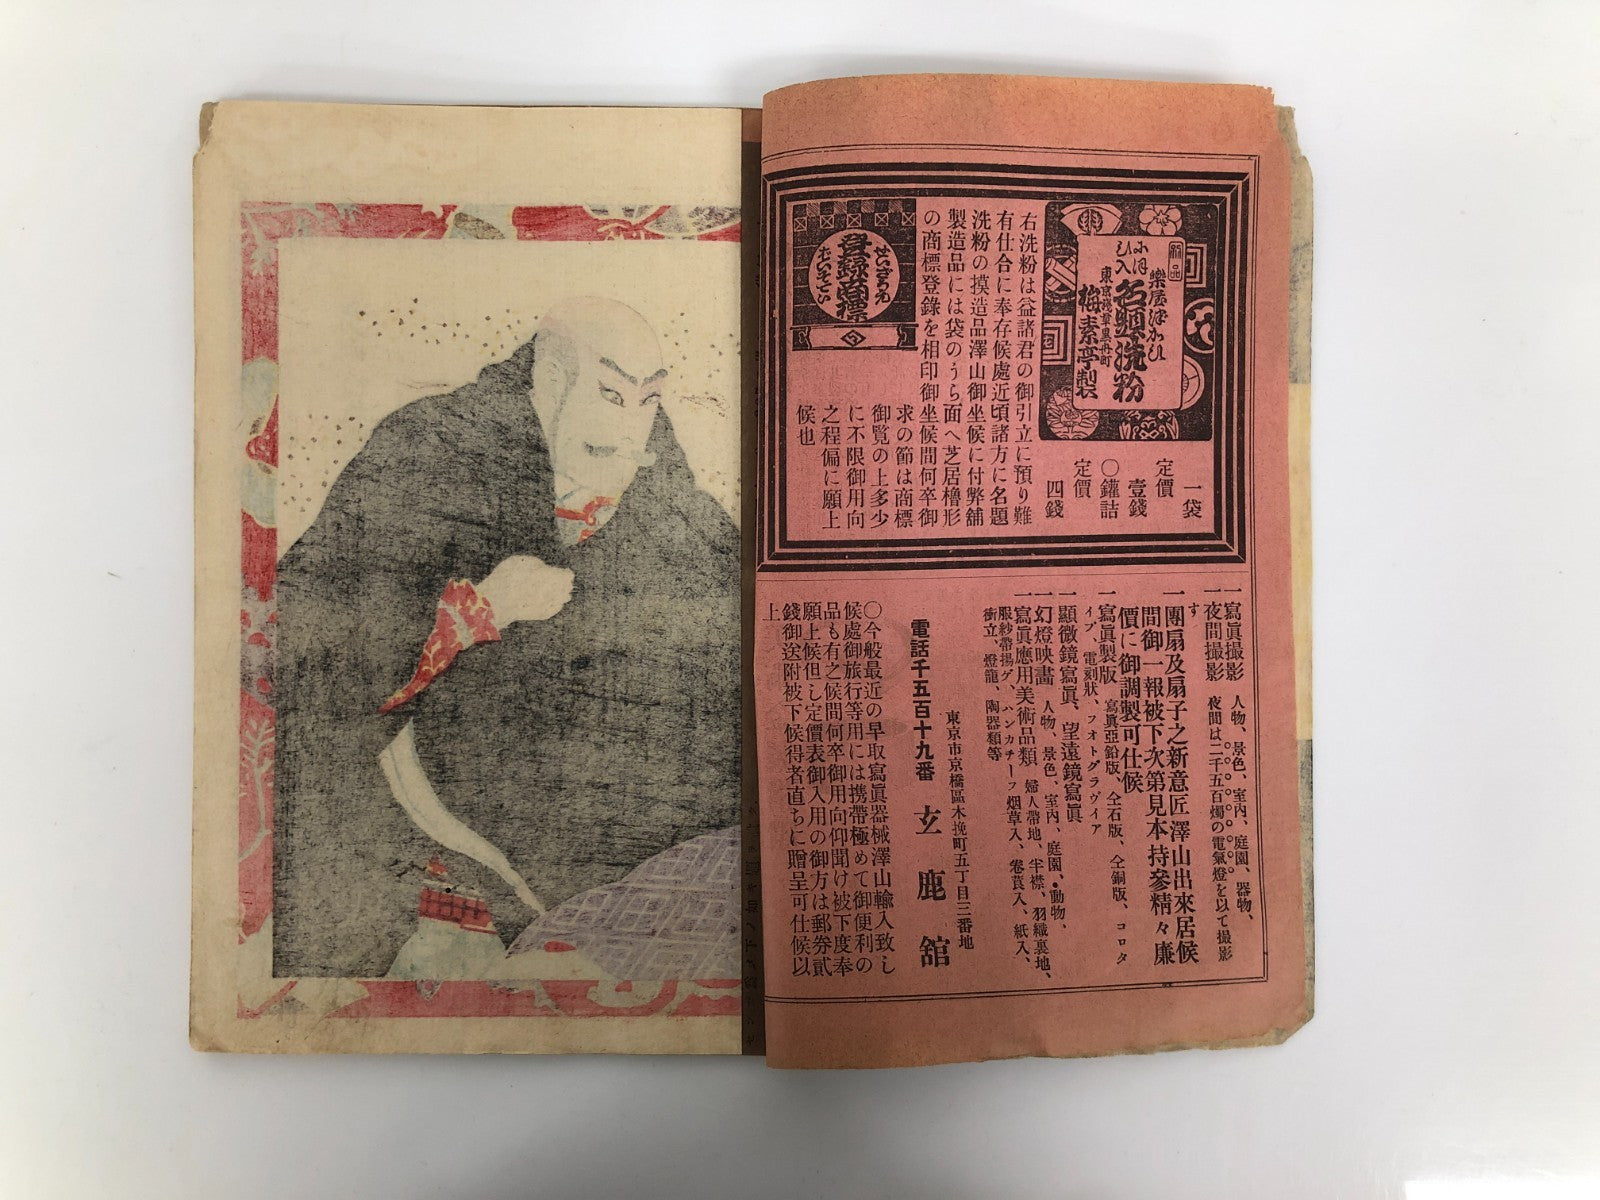 新品
樂屋ぱかひ
名顔洗粉
にほひ入
東京淺草黒舟町
梅素亭製
一袋
定價
壹錢
〇鑵詰
定價
四錢
右洗粉は益諸君の御引立に預り難
有仕合に奉存候處近頃諸方に名題
洗粉の摸造品澤山御坐候に付弊舗
製造品には袋のうら面へ芝居櫓形
の商標登錄を相印御坐候間何卒御
求の節は商標
御覽の上多少
に不限御用向
之程偏に願上
候也
登録商標
一寫眞撮影 人物、景色、室內、庭園、器物、
一夜間撮影 夜間は二千五百燭の電氣燈を以て撮影
す
一團扇及扇子之新意匠澤山出來居候
間御一報被下次第見本持參精々廉
價に御調製可仕候
一寫眞製版 寫眞亞鉛版、仝石版、仝銅版、コロタ
イプ、電刻狀、フオトグラヴイア
一顯微鏡寫眞、望遠鏡寫眞
一幻燈映畫 人物、景色、室內、庭園、動物、
一寫眞應用美術品類 婦人帶地、半襟、羽織裏地、
服紗帶揚ゲ、ハンカチーフ烟草入、卷莨入、紙入、
衝立、燈籠、陶器類等
東京市京橋區木挽町五丁目三番地
電話千五百十九番 玄鹿舘
〇今般最近の早取寫眞器械澤山輸入致し
候處御旅行等用には携帶極めて御便利の
品も有之候間何卒御用向仰聞け被下度奉
願上候但し定價表御入用の御方は郵券貳
錢御送附被下候得者直ちに贈呈可仕候以
上